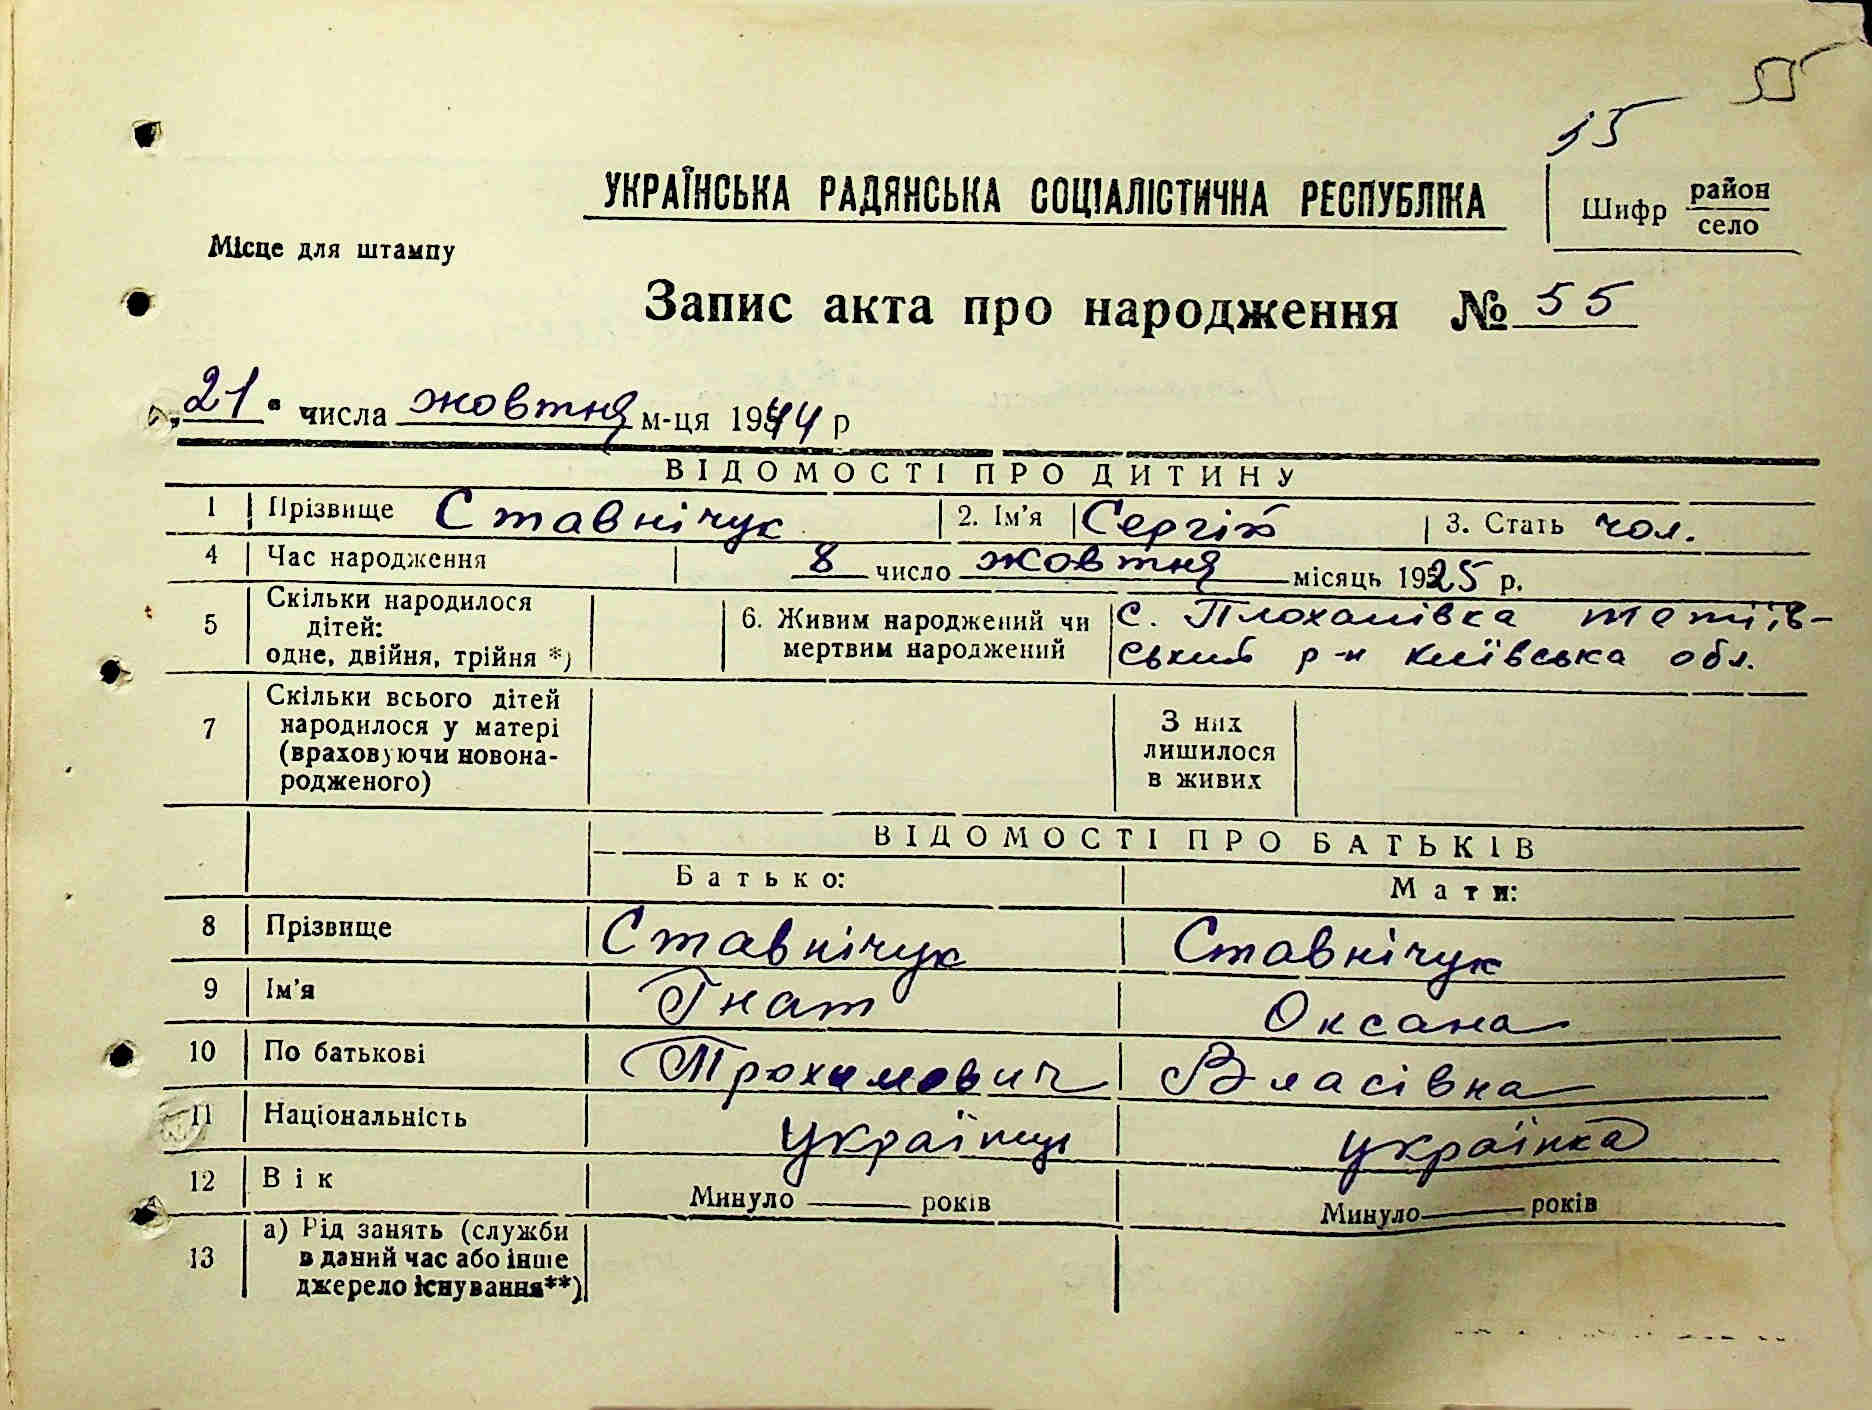 55
55
УКРАЇНСЬКА РАДЯНСЬКА СОЦІАЛІСТИЧНА РЕСПУБЛІКА
Шифр район
село
Місце для штампу
Запис акта про народження № 55
„21" числа жовтня м-ця 1944 р
ВІДОМОСТІ ПРО ДИТИНУ
1 Прізвище Ставнічук 2. Ім'я Сергій 3. Стать чол.
4 Час народження 8 число жовтня місяць 1925 р.
5 Скільки народилося дітей: одне, двійня, трійня *)
6. Живим народжений чи мертвим народжений
с. Плоханівка тетіїв-
ський р-н київська обл.
7 Скільки всього дітей народилося у матері (враховуючи новонародженого)
З них лишилося в живих
ВІДОМОСТІ ПРО БАТЬКІВ
Батько: Мати:
8 Прізвище Ставнічук Ставнічук
9 Ім'я Гнат Оксана
10 По батькові Трохимович Власівна
11 Національність українці українка
12 Вік Минуло років Минуло років
13 а) Рід занять (служби в даний час або інше джерело існування**)